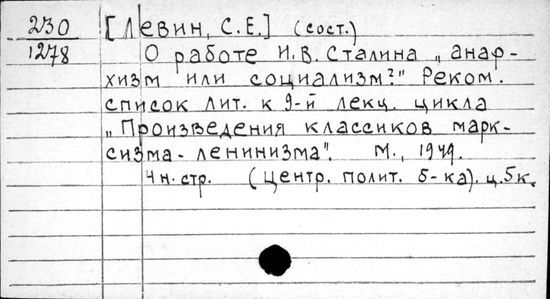 230 [Левин, С.Е.] (сост.)
1278 О работе И.В. Сталина „анар-
хизм или социализм?" Реком.
список лит. к 9-й лекц. цикла
„Произведения классиков марк-
сизма-ленинизма". М., 1949.
4 н. стр. (Центр. полит. б-ка). ц. 5 к.